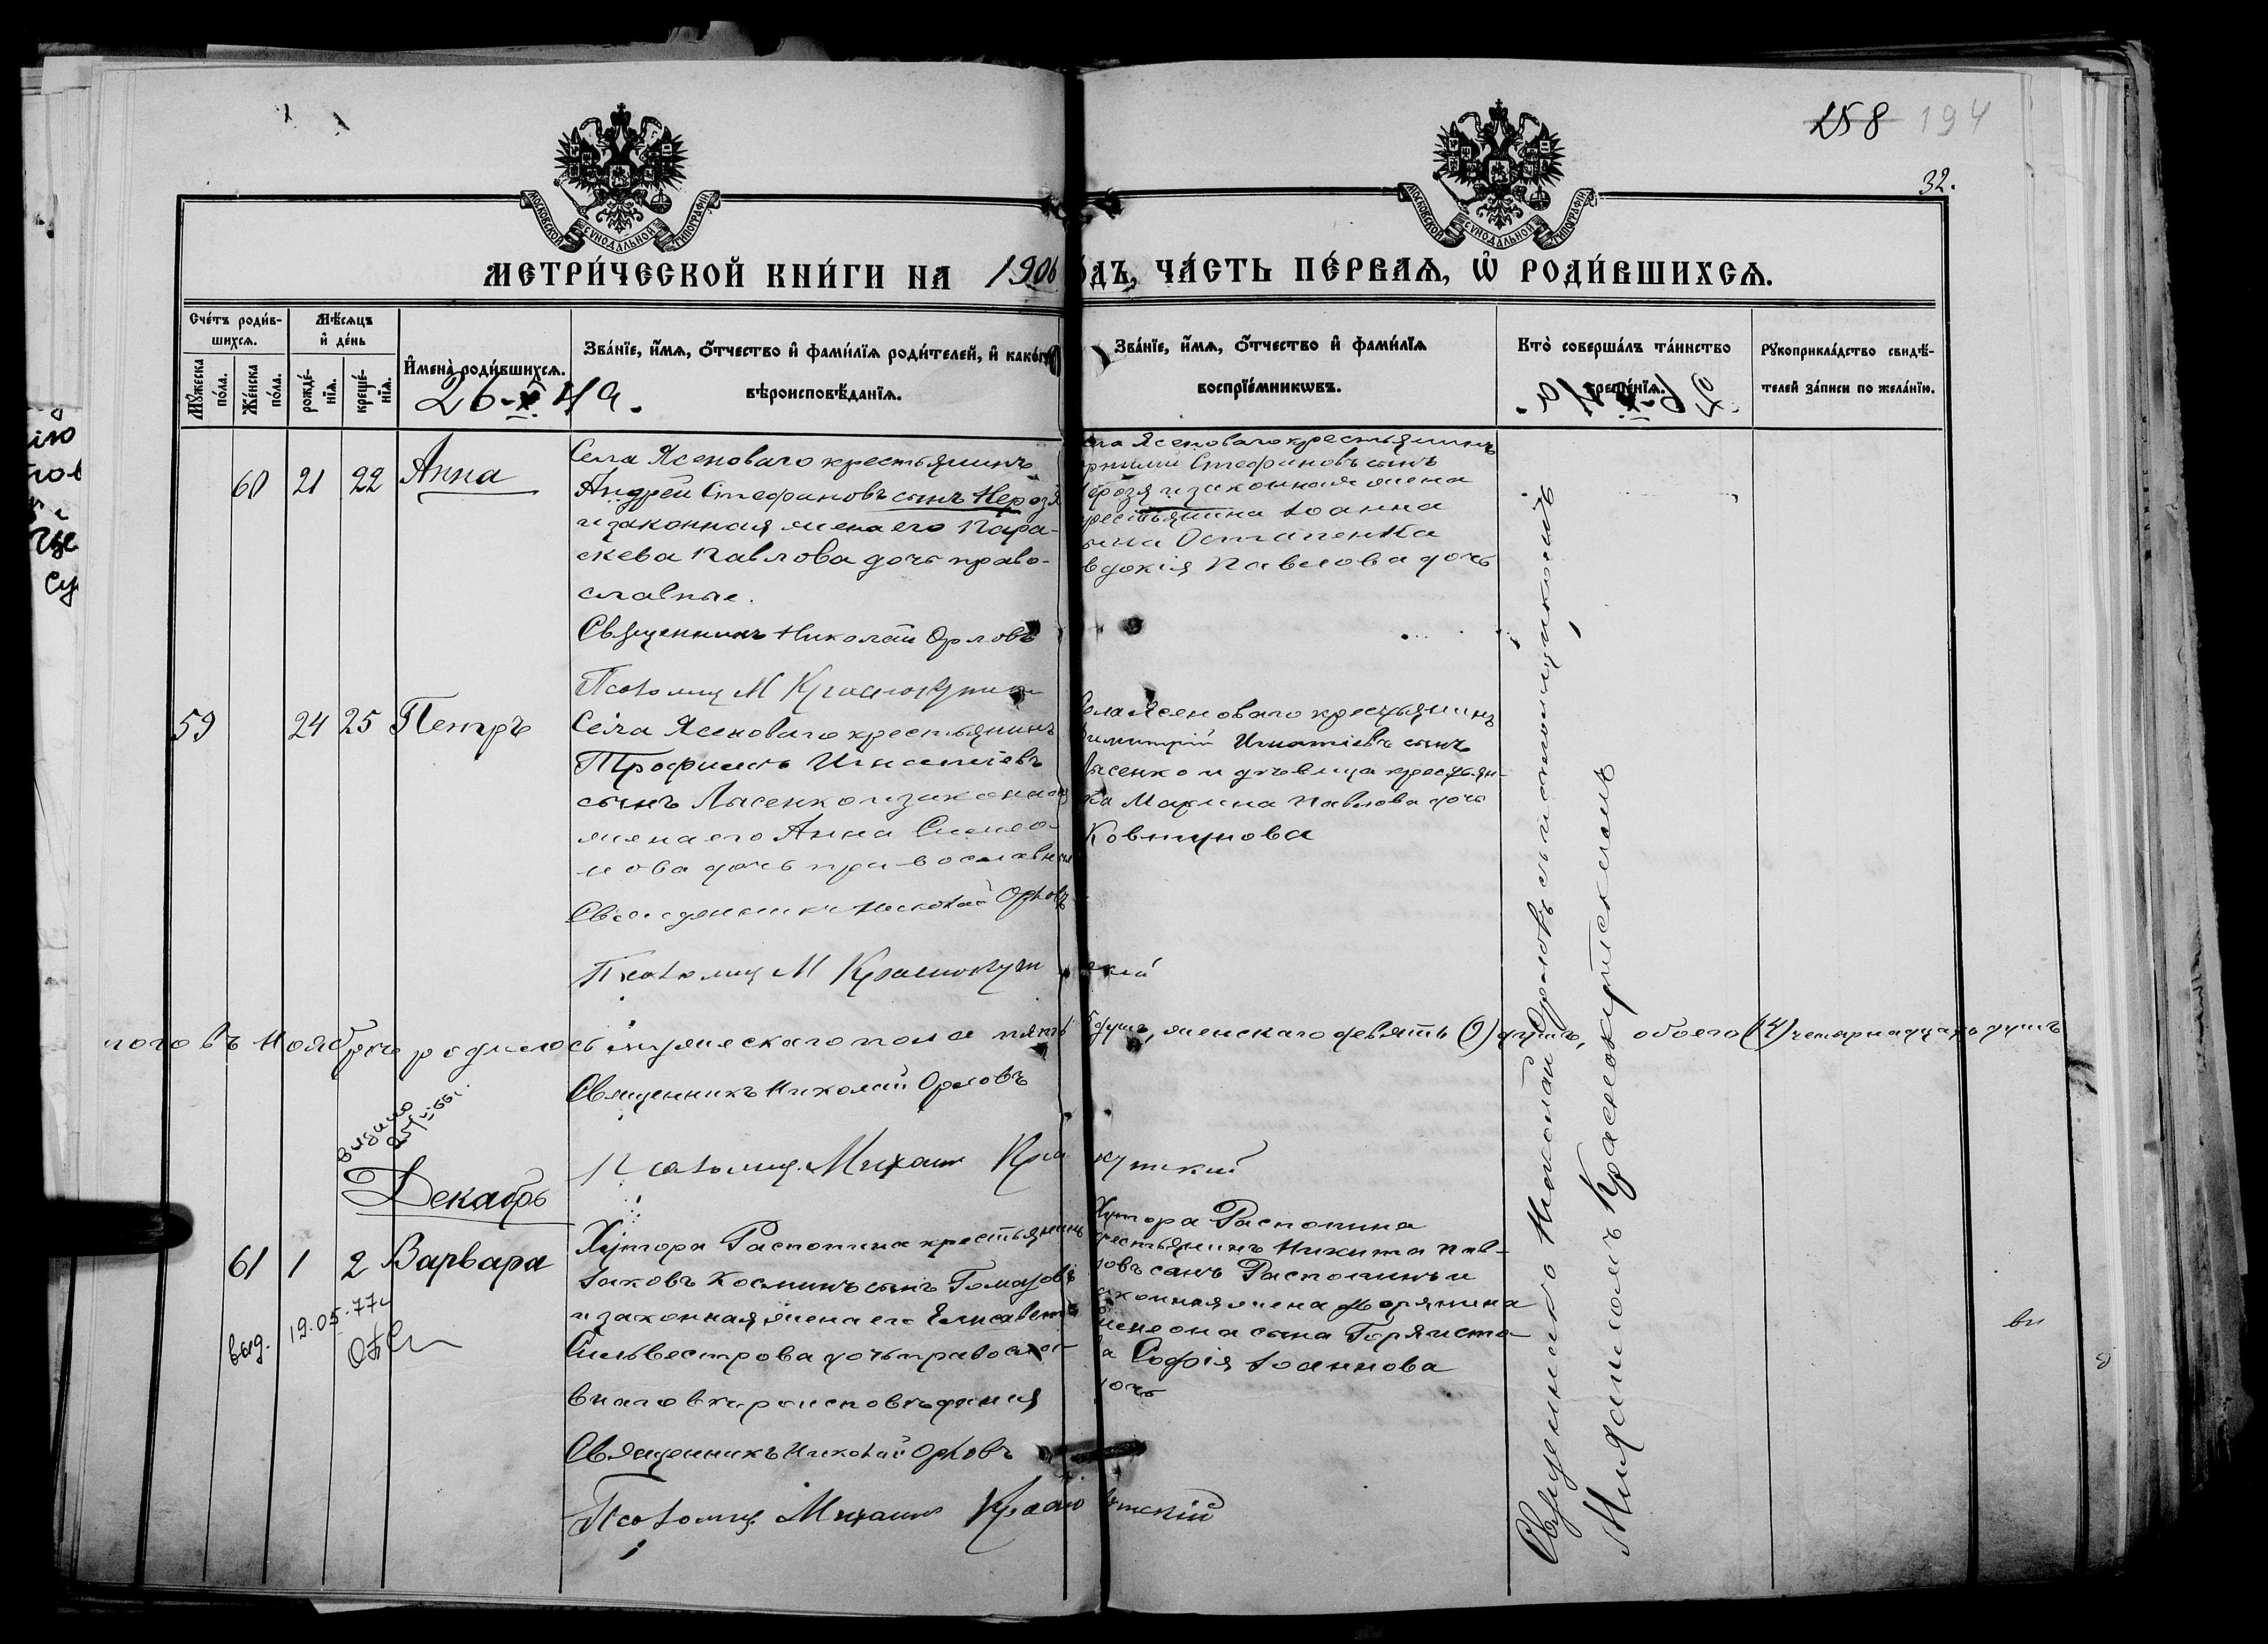 258 194
32.
МОСКОВСКОЙ СѴНОДАЛЬНОЙ ТИПОГРАФІИ
МОСКОВСКОЙ СѴНОДАЛЬНОЙ ТИПОГРАФІИ
МЕТРИ́ЧЕСКОЙ КНИ́ГИ НА 1906
ОДЪ, ЧА́СТЬ ПЕ́РВАѦ, Ѡ҆ РОДИ́ВШИХСѦ.
Сче́тъ роди́в-
шихсѧ.
Мꙋ́жеска по́ла.
Же́нска по́ла.
Мѣ́сѧцъ
и҆ де́нь
рожде́-
нїѧ.
креще́-
нїѧ.
И҆мена̀ роди́вшихсѧ.
26-X 49.
Зва́нїе, и҆́мѧ, ѻ҆́тчество и҆ фами́лїѧ роди́телей, и҆ како́гѡ
вѣроисповѣ́данїѧ.
Зва́нїе, и҆́мѧ, ѻ҆́тчество и҆ фами́лїѧ
воспрїе́мникѡвъ.
Кто̀ соверша́лъ та́инство
креще́нїѧ.
Рꙋкоприкла́дство свидѣ́-
телей за́писи по жела́нїю.
60 21 22 Анна
Села Ясеноваго крестьянинъ
Андрей Стефановъ сынъ Нерозя
и законная жена его Пара-
скева Павлова дочь право-
славные.
Священникъ Николай Орловъ
Псаломщ М Краснокутск
ела Ясеноваго крестьянинъ
Стефановъ сынъ
ерозя и законная жена
рестьянина Іоанна
Остапенка
вдокія Павлова дочь
59 24 25 Петръ
Села Ясеноваго крестьянинъ
Трофимъ Игнатіевъ
сынъ Лысенко и законная
жена его Анна Симео-
нова дочь православныя
Священникъ Николай Орловъ
Псаломщ М Краснокут ский
ела Ясеноваго крестьянинъ
имитрій Игнатіевъ сынъ
ысенко и дѣвица крестьян-
ка Марина Павлова дочь
Ковтунова
того въ Ноябрѣ родилось мужескаго пола пять 5 душъ, женскаго девять (9) душъ, обоего (14) четырнадцать душъ
Священникъ Николай Орловъ
Псаломщ. Михаил Кра кутский
видано
Декабрь
61 1 2 Варвара
выд. 19.05.77г
Хутора Распопина крестьянинъ
Іаковъ Косминъ сынъ
и законная жена его Елисавета
Сильвестрова дочь правосла-
внаго вѣроисповѣданія
Священникъ Николай Орловъ
Псаломщ Михаил Красно кутскій
Хутора Распопина
рестьянинъ Никита Пав-
ловъ сынъ Распопинъ и
аконная жена дворянина
имеона сына Горяисто-
ва Софія Іоаннова
дочь
Священникъ Николай Орловъ съ псаломщикомъ
Михаиломъ Краснокутскимъ
вн